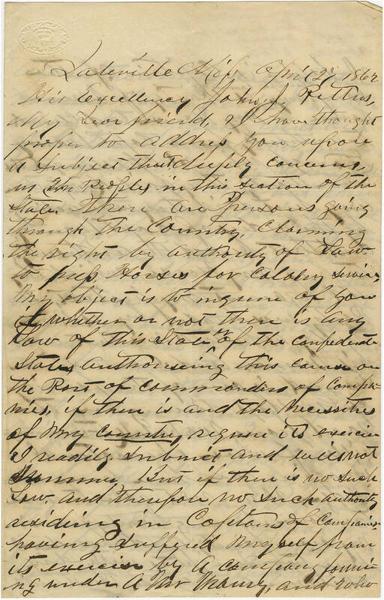 Lateville Miss April 2d 1862
His Excellency John J. Pettus,
My Dear friend, I have thought
proper to address you upon
a subject that deeply concerns
us the Peoples in this section of the
State. There are Persons going
through the Country, Claiming
the right by authority of Law
to press Horses for Calvary Service,
My object is to inquire of you
whether or not there is any
Law of this State or of the Confederate
States authorising this course on
the Part of commanders of Compa-
nies, if there is and the necessities
of my country require its exercise
I readily submit and will not
murmur But if there is no such
Law, and therefore no such authority
residing in Captains of Companies
having suffered myself from
its exercise by a company formi-
ng under a Mr and who